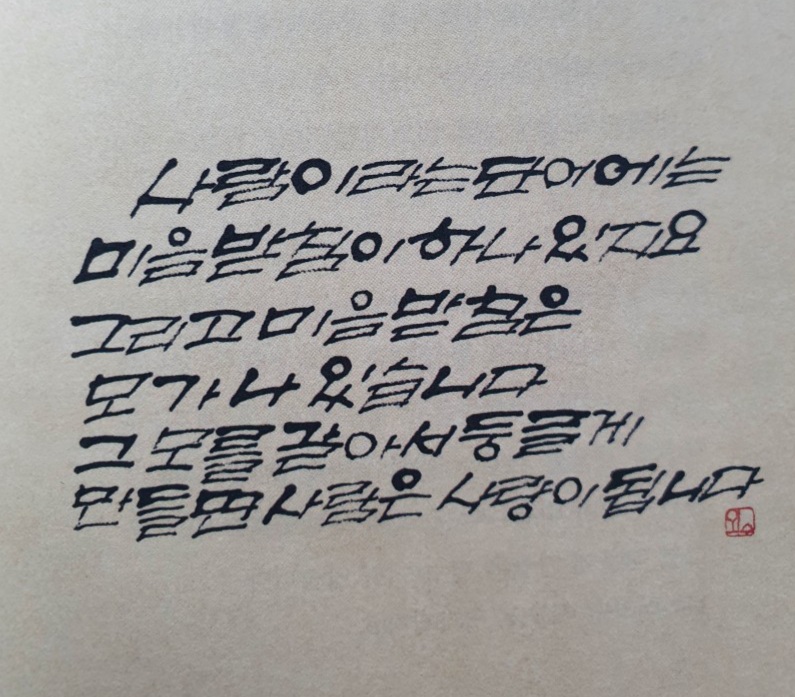 사람이라는 단어에는
미음받침이 하나 있지요
그리고 미음받침은
모가 나 있습니다
그 모를 갈아서 둥글게
만들면 사람은 사랑이 됩니다